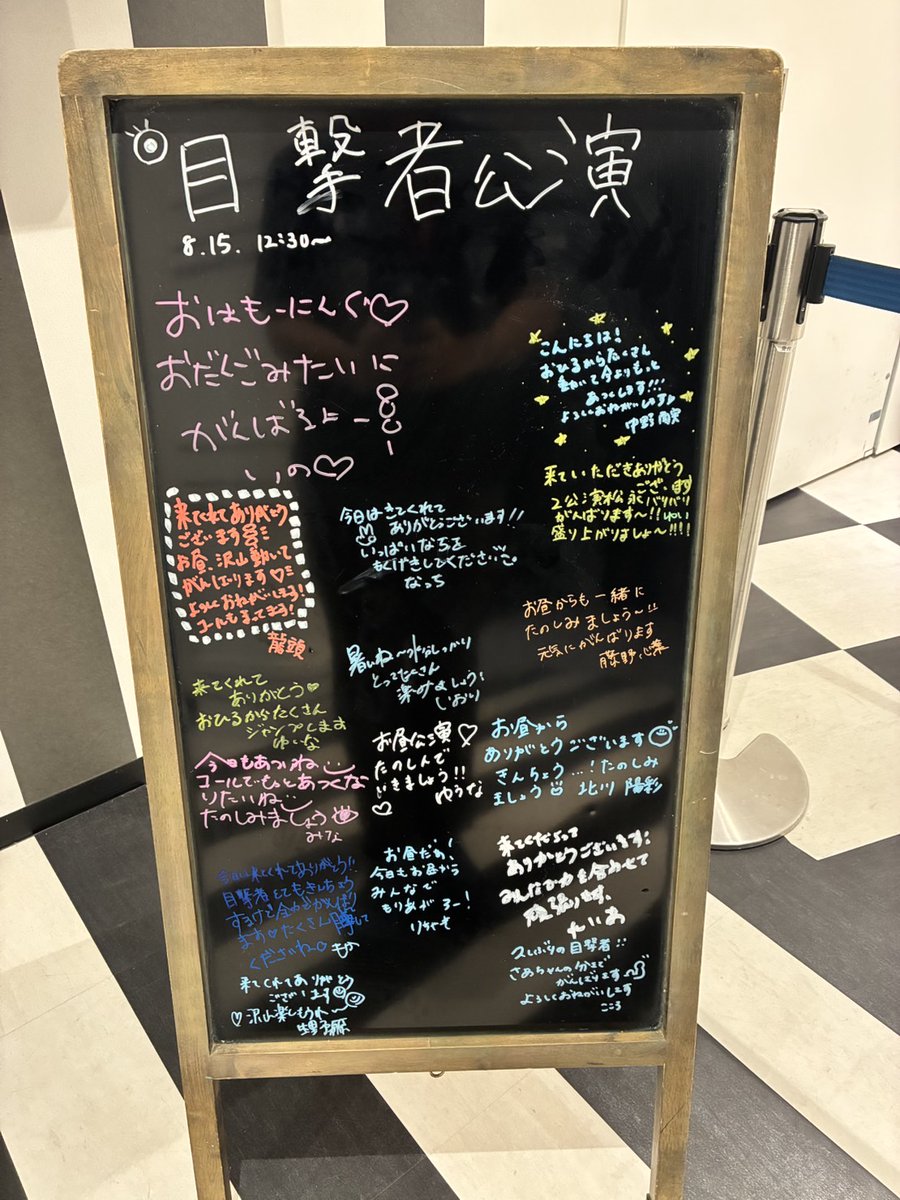 目撃者公演
8.15. 12:30〜
おはもーにんぐ♡
おだんごみたいに
がんばるよー
いの♡
こんにちは!
おひるからたくさん
動いて今よりもっと
あつくします!!!
よろしくおねがいします
中野
来ていただきありがとう
ござい、ます
2公演松永バリバリ
がんばります〜!!
盛り上がりましょ〜!!!!
来てくれてありがとう
ございます
お昼、沢山動いて
がんばります♡
よろしくおねがいします!
コールもまってます!
龍頭
今日はきてくれて
ありがとうございます!!
いっぱいなちを
もくげきしてください
なっち
お昼からも一緒に
たのしみましょう〜!!
元気にがんばります
藤野心葉
暑いね〜水分しっかり
とってたくさん
楽しみましょう!
しおり
来てくれて
ありがとう♡
おひるからたくさん
ジャンプします
ゆいな
お昼公演♡
たのしんで
いきましょう!!
ゆうな
♡
お昼から
ありがとうございます
きんちょう…!たのしみ
ましょう 北川 陽彩
今日もあついね
コールでもっとあつくな
りたいね
たのしみましょう
みな
お昼だぁ!
今日もお昼から
みんなで
もりあがろー!
来てくださって
ありがとうございます!
みんなで力を合わせて
頑張ります、
今日は来てくれてありがとう!!
目撃者とてもきんちょう
するけど全力でがんばり
ます♡たくさん
くださいね〜♡
ひさしぶりの目撃者!!
さあちゃんの分まで
がんばります
よろしくおねがいします
こころ
来てくれてありがとう
ございます
♡沢山楽しもうね〜